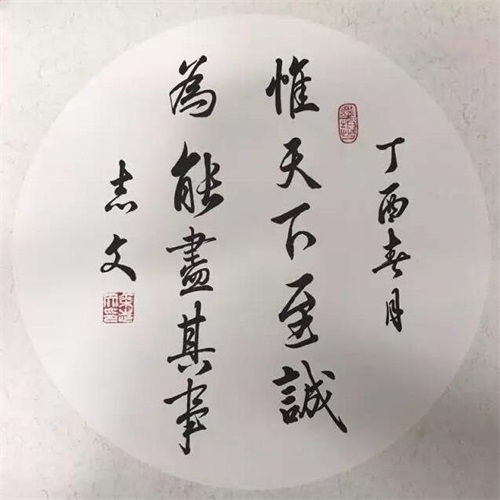 丁酉春月
惟天下至誠
為能盡其事
志文